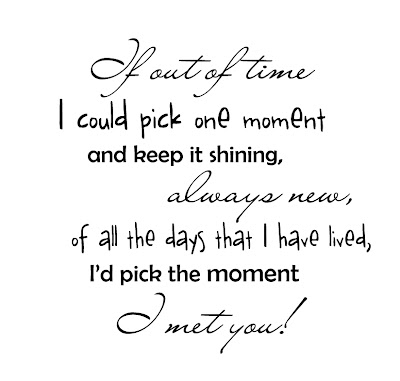 If out of time
I could pick one moment
and keep it shining,
always new,
of all the days that I have lived,
I'd pick the moment
I met you!